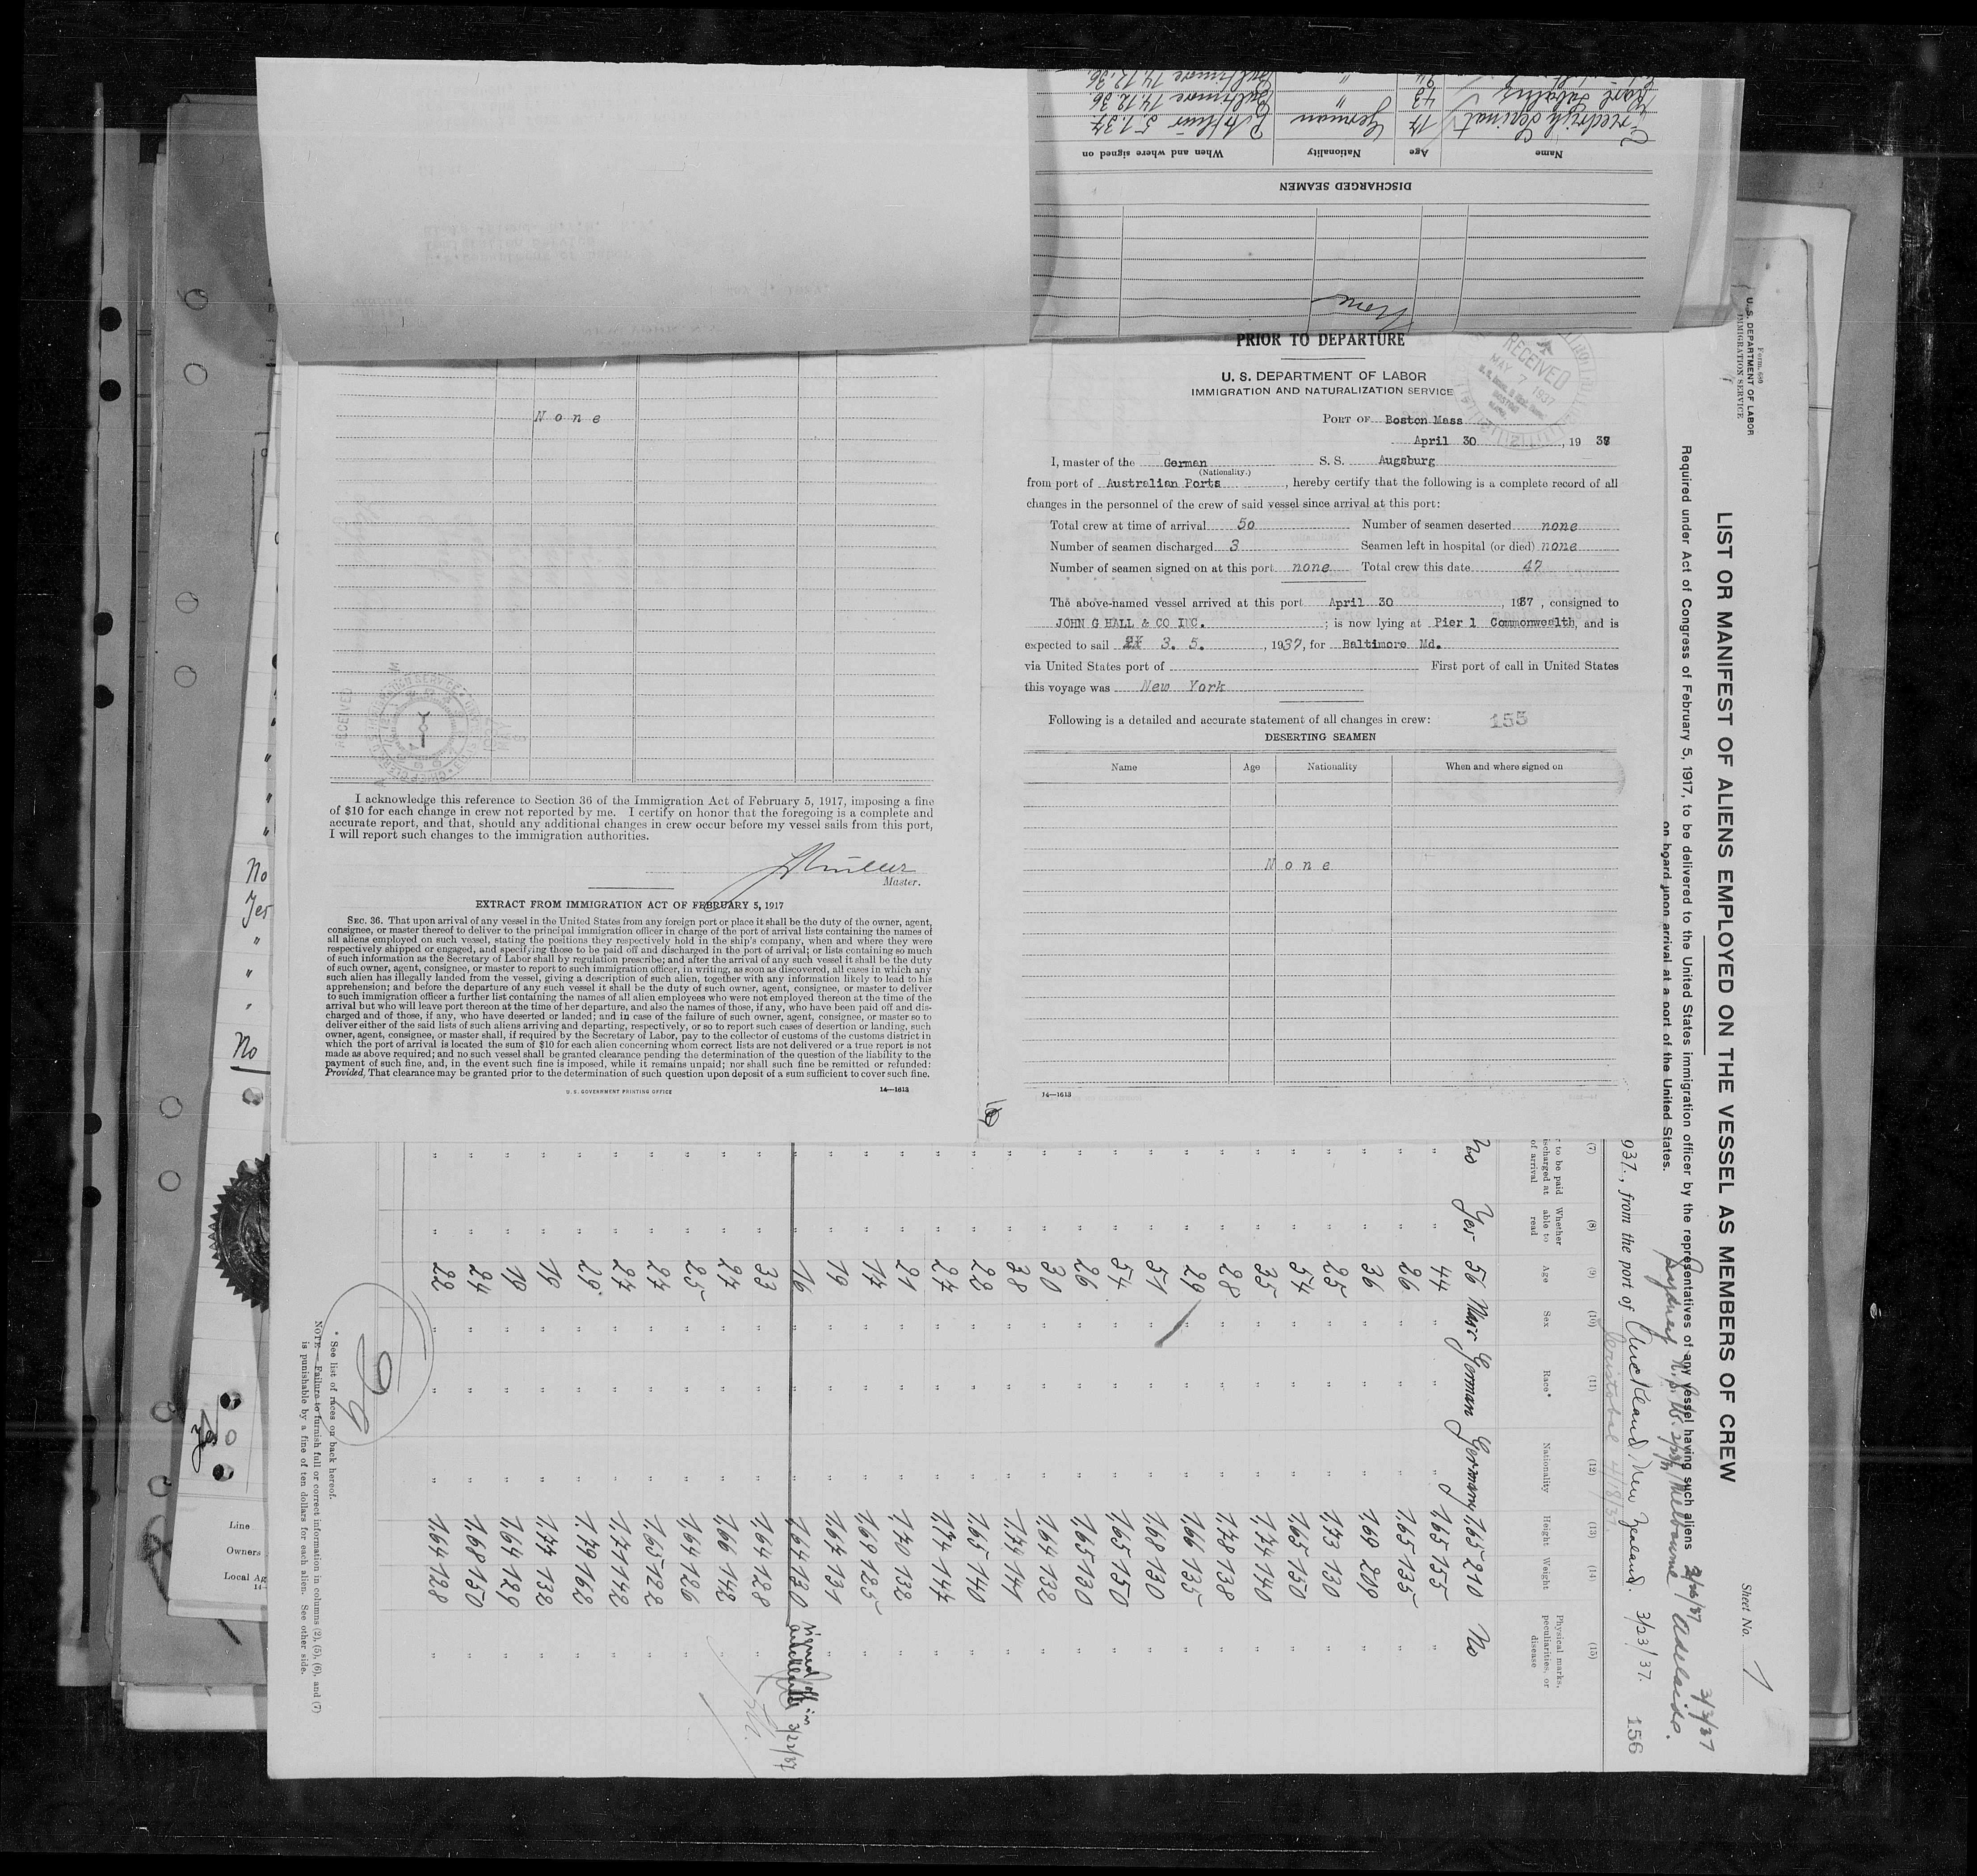 Friedrich Leginat 17 German P. Arthur 5.1.37
Karl 43 " Baltimore 14.12.36.
Baltimore 14.12.36.
Name Age Nationality When and where signed on
DISCHARGED SEAMEN
None
PRIOR TO DEPARTURE
U. S. DEPARTMENT OF LABOR
IMMIGRATION AND NATURALIZATION SERVICE
RECEIVED
MAY 7 1937
BOSTON
PORT OF Boston Mass
April 30, 19 37
I, master of the German S. S. Augsburg
(Nationality.)
from port of Australian Ports, hereby certify that the following is a complete record of all
changes in the personnel of the crew of said vessel since arrival at this port:
Total crew at time of arrival 50 Number of seamen deserted none
Number of seamen discharged 3 Seamen left in hospital (or died) none
Number of seamen signed on at this port none Total crew this date 47
The above-named vessel arrived at this port April 30, 1937, consigned to
JOHN G HALL & CO INC. ; is now lying at Pier 1 Commonwealth, and is
expected to sail 3. 5., 1937, for Baltimore Md.
via United States port of First port of call in United States
this voyage was New York
Following is a detailed and accurate statement of all changes in crew: 155
DESERTING SEAMEN
Name Age Nationality When and where signed on
None
14—1613
None
RECEIVED
I acknowledge this reference to Section 36 of the Immigration Act of February 5, 1917, imposing a fine
of $10 for each change in crew not reported by me. I certify on honor that the foregoing is a complete and
accurate report, and that, should any additional changes in crew occur before my vessel sails from this port,
I will report such changes to the immigration authorities.
Master.
EXTRACT FROM IMMIGRATION ACT OF FEBRUARY 5, 1917
SEC. 36. That upon arrival of any vessel in the United States from any foreign port or place it shall be the duty of the owner, agent,
consignee, or master thereof to deliver to the principal immigration officer in charge of the port of arrival lists containing the names of
all aliens employed on such vessel, stating the positions they respectively hold in the ship's company, when and where they were
respectively shipped or engaged, and specifying those to be paid off and discharged in the port of arrival; or lists containing so much
of such information as the Secretary of Labor shall by regulation prescribe; and after the arrival of any such vessel it shall be the duty
of such owner, agent, consignee, or master to report to such immigration officer, in writing, as soon as discovered, all cases in which any
such alien has illegally landed from the vessel, giving a description of such alien, together with any information likely to lead to his
apprehension; and before the departure of any such vessel it shall be the duty of such owner, agent, consignee, or master to deliver
to such immigration officer a further list containing the names of all alien employees who were not employed thereon at the time of the
arrival but who will leave port thereon at the time of her departure, and also the names of those, if any, who have been paid off and dis-
charged and of those, if any, who have deserted or landed; and in case of the failure of such owner, agent, consignee, or master so to
deliver either of the said lists of such aliens arriving and departing, respectively, or so to report such cases of desertion or landing, such
owner, agent, consignee, or master shall, if required by the Secretary of Labor, pay to the collector of customs of the customs district in
which the port of arrival is located the sum of $10 for each alien concerning whom correct lists are not delivered or a true report is not
made as above required; and no such vessel shall be granted clearance pending the determination of the question of the liability to the
payment of such fine, and, in the event such fine is imposed, while it remains unpaid; nor shall such fine be remitted or refunded:
Provided, That clearance may be granted prior to the determination of such question upon deposit of a sum sufficient to cover such fine.
U. S. GOVERNMENT PRINTING OFFICE 14—1613
No
Yes
"
"
"
No
Line
Owners
Local Ag
Form 689
U. S. DEPARTMENT OF LABOR
IMMIGRATION SERVICE
Sheet No. 1
LIST OR MANIFEST OF ALIENS EMPLOYED ON THE VESSEL AS MEMBERS OF CREW
Required under Act of Congress of February 5, 1917, to be delivered to the United States immigration officer by the representatives of any vessel having such aliens
on board upon arrival at a port of the United States.
Sydney N.S.W. Melbourne Adelaide. 3/3/37
937., from the port of Auckland, New Zealand. 3/23/37. 156
Cristobal 4/18/37.
(7) (8) (9) (10) (11) (12) (13) (14) (15)
to be paid Whether Age Sex Race* Nationality Height Weight Physical marks,
discharged at able to peculiarities, or
of arrival read disease
No Yes 56 Mas German Germany 1,65 210 No
" " 44 " " " 1,65 155 "
" " 26 " " " 1,65 135 "
" " 36 " " " 1,69 209 "
" " 25 " " " 1,73 130 "
" " 54 " " " 1,65 150 "
" " 35 " " " 1,74 140 "
" " 28 " " " 1,78 138 "
" " 29 " " " 1,66 135 "
" " 51 " " " 1,68 130 "
" " 54 " " " 1,65 150 "
" " 26 " " " 1,65 130 "
" " 30 " " " 1,64 132 "
" " 38 " " " 1,74 141 "
" " 22 " " " 1,65 140 "
" " 27 " " " 1,74 144 "
" " 21 " " " 1,70 132 "
" " 17 " " " 1,69 125 "
" " 19 " " " 1,67 131 "
" " 16 " " " 1,64 130 signed off in Auckland 3/22/37
" " 33 " " " 1,64 128 "
" " 27 " " " 1,66 142 "
" " 25 " " " 1,64 126 "
" " 27 " " " 1,65 122 "
" " 27 " " " 1,71 142 "
" " 29 " " " 1,79 162 "
" " 19 " " " 1,77 132 "
" " 19 " " " 1,64 129 "
" " 24 " " " 1,68 150 "
" " 22 " " " 1,64 128 "
* See list of races on back hereof.
NOTE.—Failure to furnish full or correct information in columns (2), (5), (6), and (7)
is punishable by a fine of ten dollars for each alien. See other side.